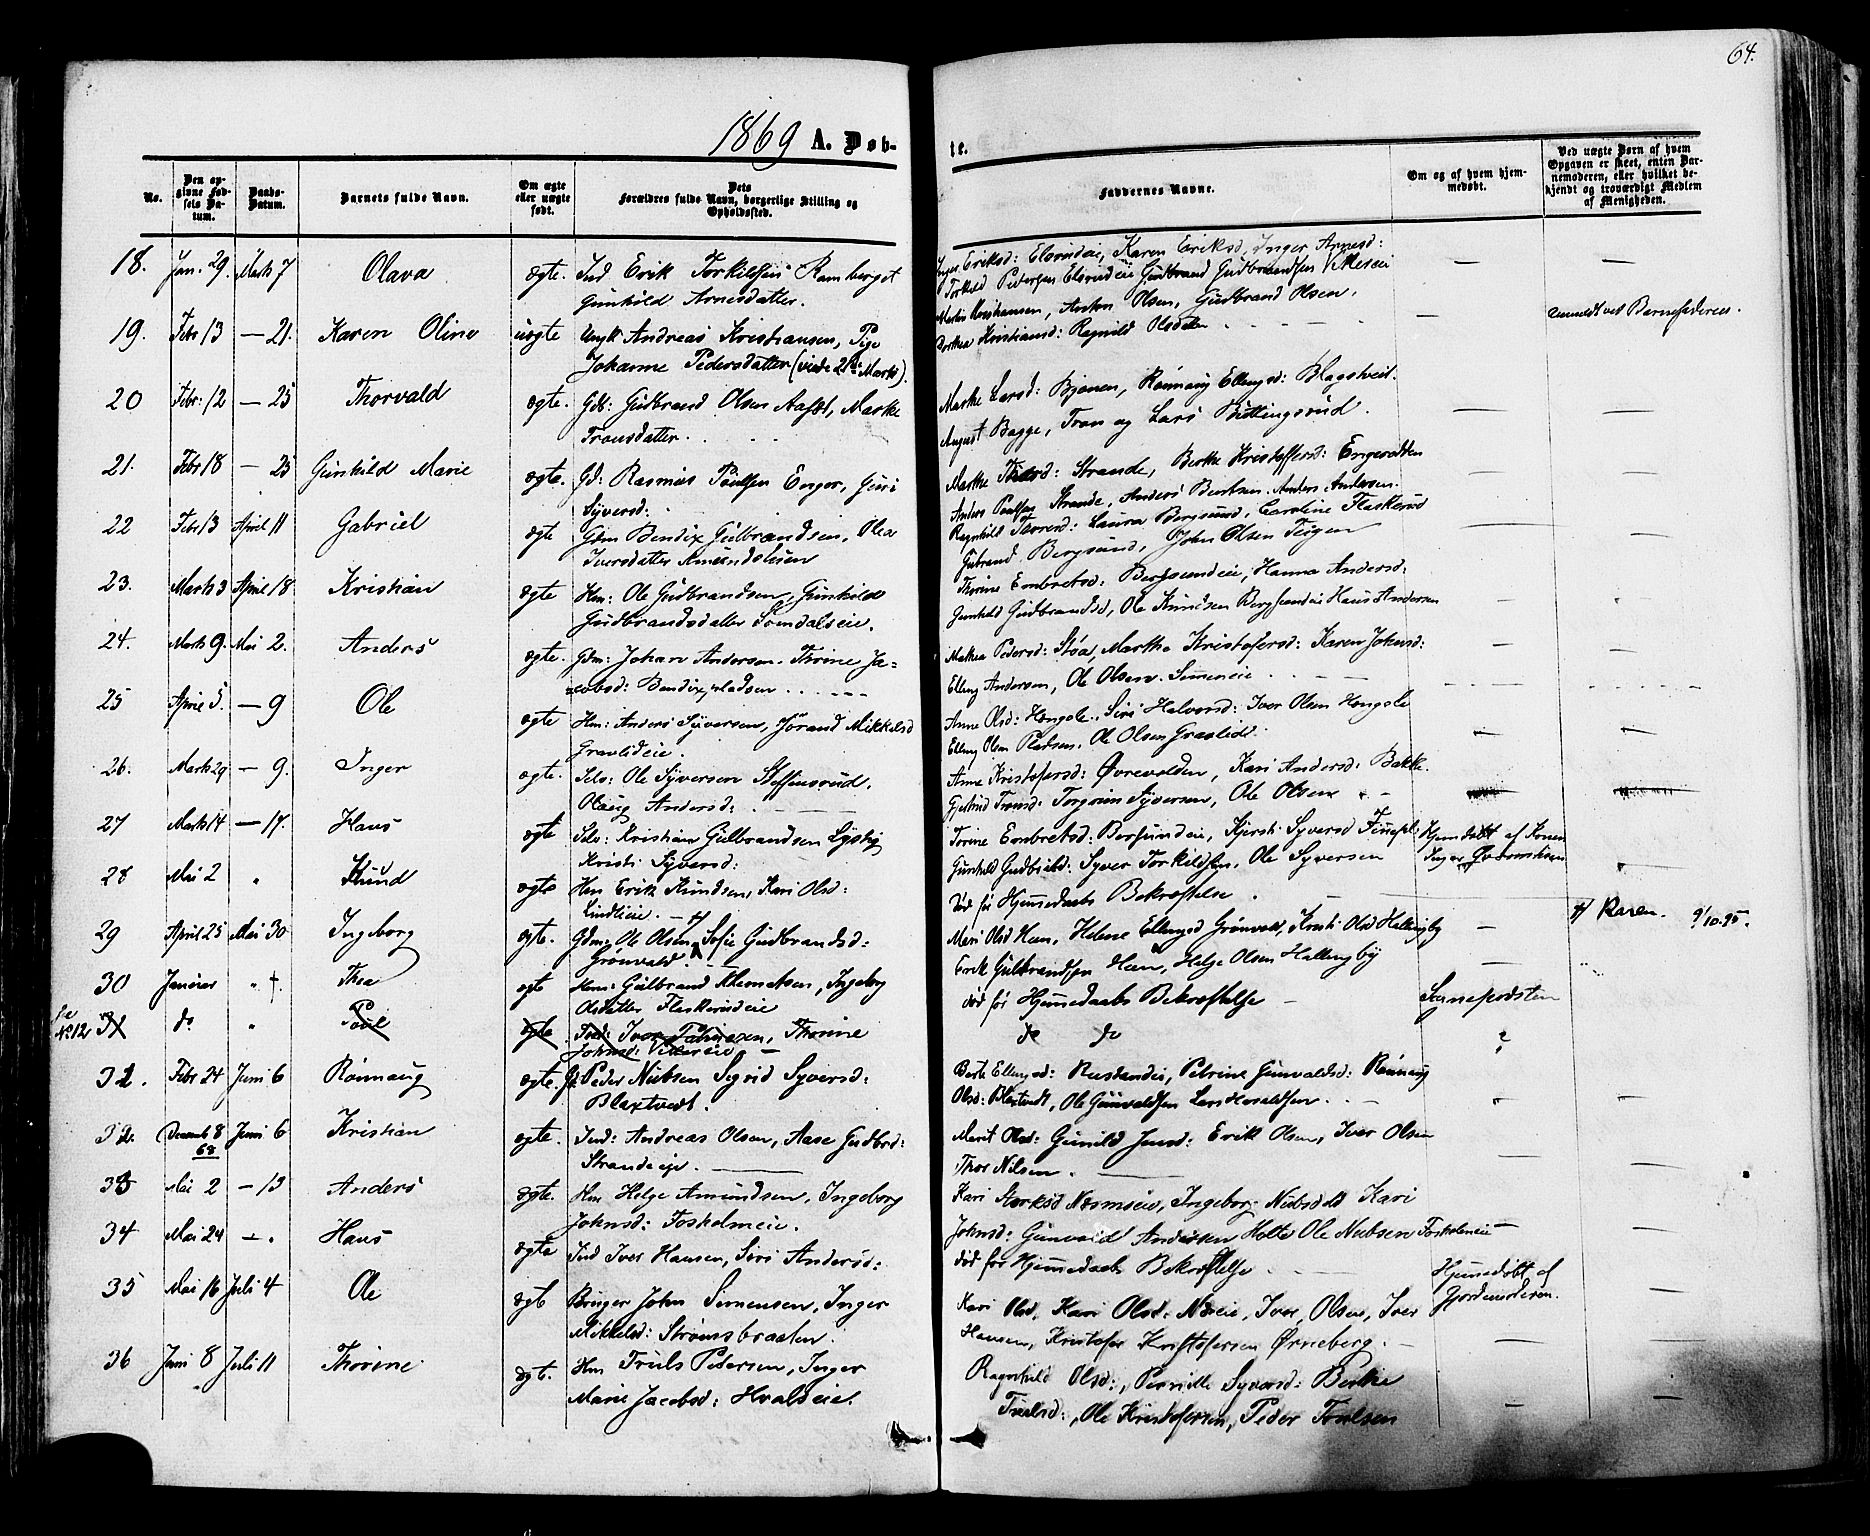 64.
1869 A. Døb-
te.
No.
Den op-
givne Fød-
sels Da-
tum.
Daabs-
Datum.
Barnets fulde Navn.
Om ægte
eller uægte
født.
Dets
Forældres fulde Navn, borgerlige Stilling og
Opholdssted.
Faddernes Navne.
Om og af hvem hjem-
medøbt.
Ved uægte Børn af hvem
Opgaven er skeet, enten Bar-
nemoderen, eller hvilket be-
kjendt og troværdigt Medlem
af Menigheden.
18. Jan. 29. Marts 7 Olava ægte. Ind Erik Torkildsen Ramberget
Gunhild Arnesdatter.
Inger Eriksd: Elsrudeie, Karen Eriksd, Inger Arnesd:
Torkild Pedersen Elsrudeie Gudbrand Gudbrandsen Vikerseie
19. Febr 13 — 21. Karen Oline uægte Ungk Andreas Kristiansen, Pige
Johanne Pedersdatter (viede 21de Marts).
Martin Kristiansen, Anton Olsen, Gudbrand Olsen,
Dorthea Kristiansd: Ragnild Olsdatter
anmeldt ved Barnefaderen.
20 Febr: 12 — 25 Thorvald ægte. Gdb: Gudbrand Olsen Aasæt, Marthe
Tronsdatter.
Marthe Larsd: Bjønen, Rønnaug Ellingsd: Blagstveit.
August Bagge, Tron og Lars Buttingsrud.
21. Febr 18 — 25 Gunhild Marie ægte. Gd: Rasmus Poulsen Enger, Guri
Syversd:
Marthe Strande, Berthe Kristoffersd: Engerodden
Anders Poulsen Strande, Anders Berntsen, Anders Andersen.
22 Febr 13 April 11 Gabriel ægte Gdm Bendix Gulbrandsen, Olea
Iversdatter
Ragnhild Thoresd: Laura Bergsund, Caroline Flaskerud
Gutrand Bergsund, John Olsen Teigen
23. Marts 3 April 18 Kristian ægte Hm: Ole Gudbrandsen, Gunhild
Gudbrandsdatter Somdalseie.
Thrine Embretsd: Bergsundeie, Hanna Andersd:
Gunhild Gudbrandsd, Ole Knudsen Bergsundeie Hans Andersen
24. Marts 9. Mai 2. Anders ægte. Gdm: Johan Andersen. Thrine Ja-
cobsd: Bendixpladsen
Mathea Pedersd: Støa, Marthe Kristofersd: Karen Johnsd:
Elling Andersen, Ole Olsen
25 April 5. — 9 Ole ægte Hm: Anders Syversen, Jørand Mikkelsd
Gravlideie.
Anne Olsd: Hengsle, Siri Halvorsd: Iver Olsen Hengsle
Elling Olsen Pladsen, Ole Olsen Gravlide.
26. Marts 29 — 9. Inger ægte. Selv: Ole Syversen Steffensrud,
Olaug Andersd:
Anne Kristofersd: Øvrevolden, Kari Andersd: Bakke.
Gjertrud Tronsd: Torgrim Syversen, Ole Olsen
27 Marts 14 — 17. Hans ægte Selv: Kristian Gulbrandsen Lystig
Kristi Syversd:
Torine Embretsd: Bersundeie, Kjersti Syversd
Gunhild Syver Torkildsen, Ole Syversen
Hjemdøbt af Konen
Inger
28 Mai 2 " Knud ægte Hm Erik Knudsen, Kari Olsd:
Lindleie.
Død før Hjemmedaabs Bekræftelse
29 April 25 Mai 30 Ingeborg ægte. Gdm: Ole Olsen Sofie Gudbrandsd:
Grønvold.
Mari Olsd Hæn, Helene Ellingsd Grønvold, Kristi Olsd Hallingby
Erik Gulbrandsen Hæn, Helge Olsen Hallingby
Karen. 9/10.95.
30 Januar " †. Thea ægte Hm: Gulbrand Klementsen, Ingeborg
Olsdatter Flaskerudeie
død før Hjemmedaabs Bekræftelse
Sognepræsten
No 12 31 do " Poul ægte. Iver Thorine
Johnsd: Vikerseie
do do
?
31. Febr 24 Juni 6 Rønnaug ægte. Gd Peder Nubsen Sigrid Syversd:
Blaxtvedt.
Berte Ellingsd: Rustandeie, Petrine Gunvaldsd: Rønnaug
Olsd: Blaxtvedt, Ole Gunvaldsen Lars Haraldsen
32. Decemb 8 68 Juni 6 Kristian ægte. Ind: Andreas Olsen, Aase Gudbrd:
Strandeeie.
Marit Olsd: Gunild Erik Olsen, Iver Olsen
Thor Nilsen.
33 Mai 2 — 13 Anders ægte. Hm Helge Amundsen, Ingeborg
Johnsd: Fosholmeie.
Kari Næsmoeie, Ingeborg Nubsdtt Kari
Johnsd: Gunvald Andersen Holte Ole Nubsen Fosholmeie
34 Mai 24 — " Hans ægte Ind Iver Hansen, Siri Andersd:
død før Hjemmedaabs Bekræftelse
Hjemmedøbt af
Gjordemoderen.
35 Mai 16 Juli 4 Ole ægte Bruger John Simensen, Inger
Mikkelsd: Strømsbraaten.
Kari Olsd, Kari Olsd: Næseie, Iver Olsen, Iver
Hansen, Kristofer Kristofersen Ørneberg.
36 Juni 8 Juli 11 Thorine ægt. Hm Truls Pedersen, Inger
Marie Jacobsd: Hvalseie.
Ragnhild Olsd:, Pernille Syversd: Berthe
Trulsd:, Ole Kristofersen, Peder Trulsen